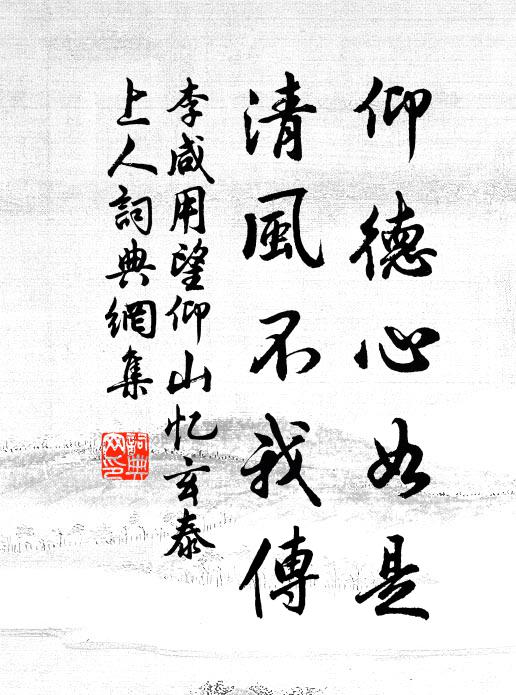 仰德心如是
清風不我傳
李咸用望仰山忆玄泰
上人詞典網集
詞典
网印